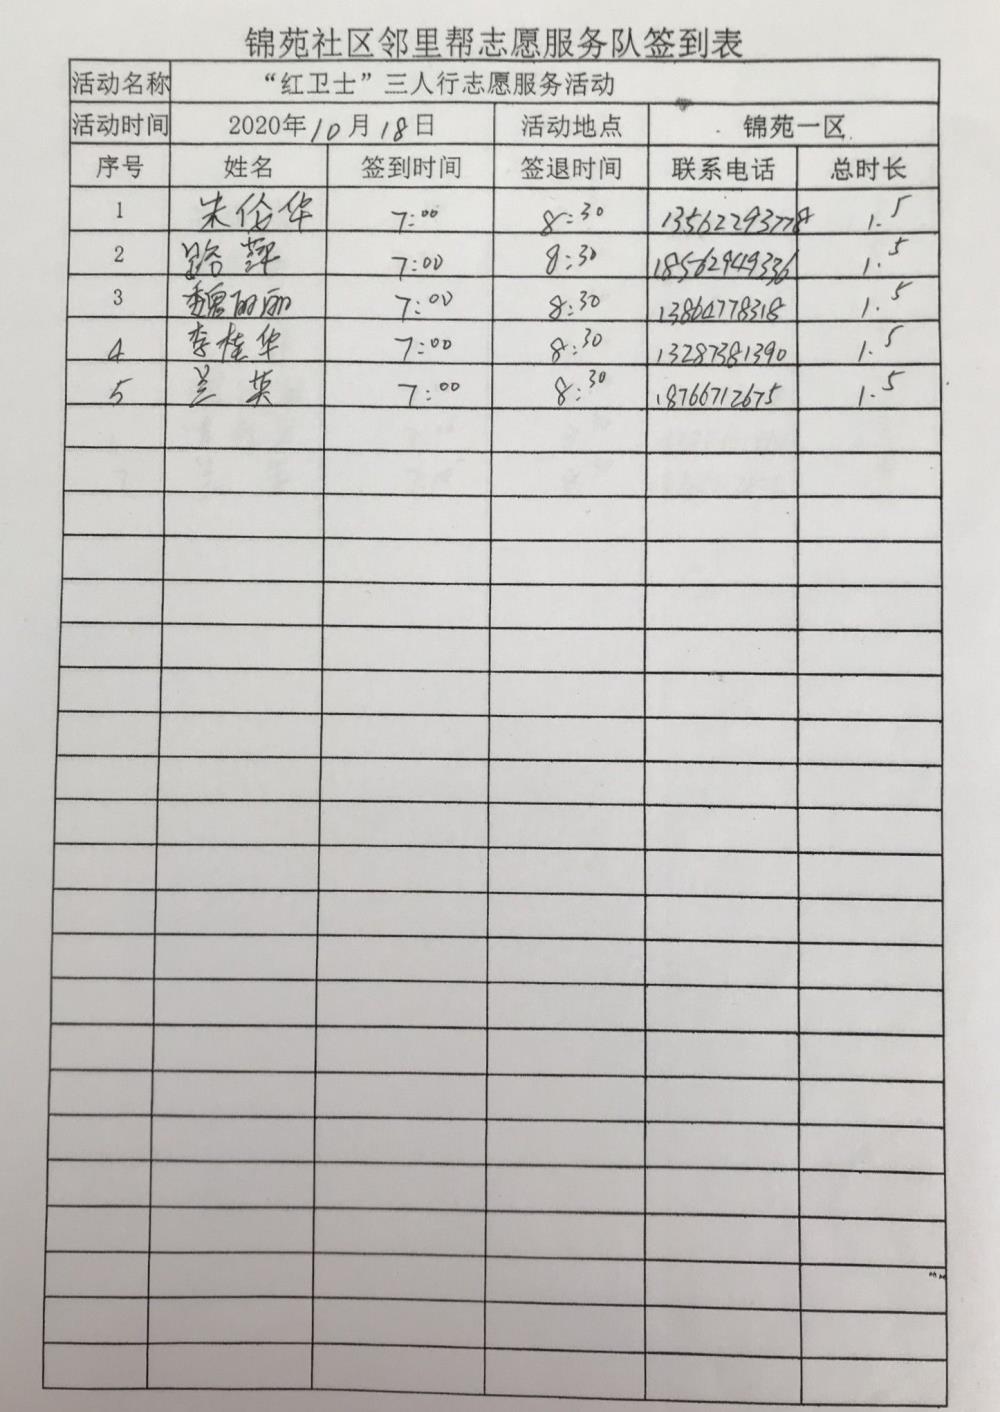 锦苑社区邻里帮志愿服务队签到表
活动名称 “红卫士”三人行志愿服务活动
活动时间 2020年10月18日 活动地点 锦苑一区
序号 姓名 签到时间 签退时间 联系电话 总时长
1 朱伦华 7:00 8:30 13562293778 1.5
2 路萍 7:00 8:30 18562949336 1.5
3 魏丽丽 7:00 8:30 13864778318 1.5
4 李桂华 7:00 8:30 13287381390 1.5
5 兰英 7:00 8:30 18766712675 1.5